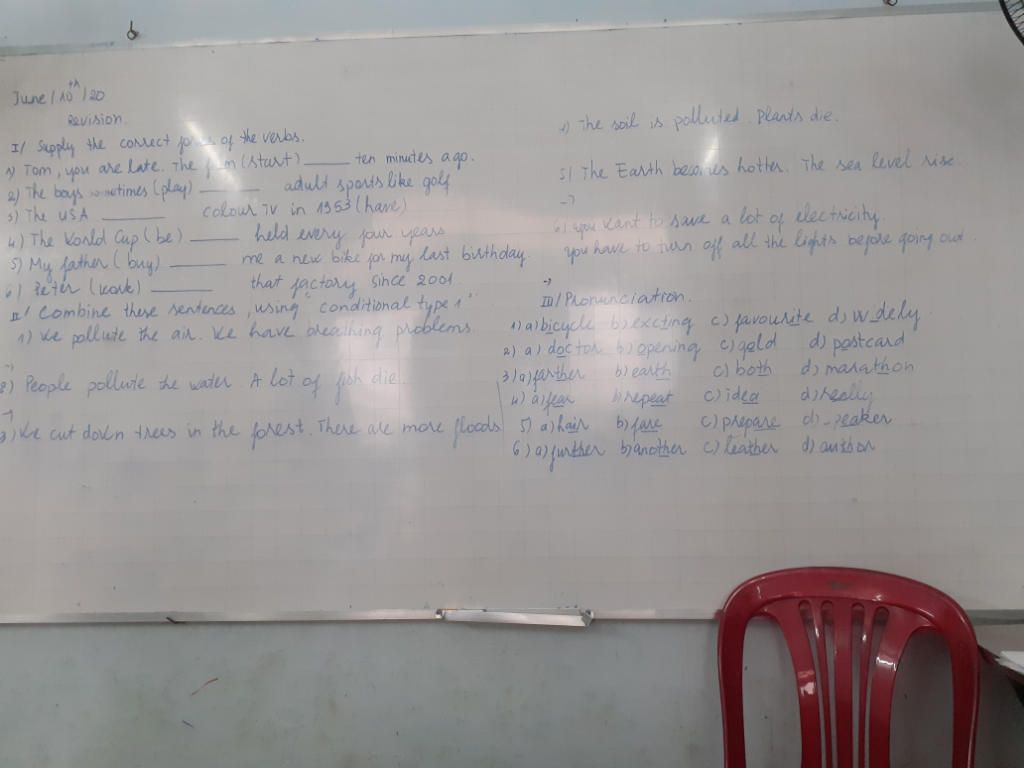 June/10th/20
Revision
I/ Supply the correct forms of the verbs.
1) Tom, you are late. The film (start) _____ ten minutes ago.
2) The boys sometimes (play) _____ adult sports like golf
3) The USA _____ colour TV in 1953 (have)
4) The World Cup (be) _____ held every four years
5) My father (buy) _____ me a new bike for my last birthday.
6) Peter (work) _____ that factory since 2001.
II/ Combine these sentences, using "conditional type 1"
1) We pollute the air. We have breathing problems.
→
2) People pollute the water. A lot of fish die.
→
3) We cut down trees in the forest. There are more floods
4) The soil is polluted. Plants die.
5/ The Earth becomes hotter. The sea level rise.
→
6) you want to save a lot of electricity.
you have to turn off all the lights before going out.
→
III/ Pronunciation.
1) a) bicycle b) exciting c) favourite d) widely
2) a) doctor b) opening c) gold d) postcard
3) a) farther b) earth c) both d) marathon
4) a) fear b) repeat c) idea d) really
5) a) hair b) fare c) prepare d) eaker
6) a) further b) another c) leather d) author